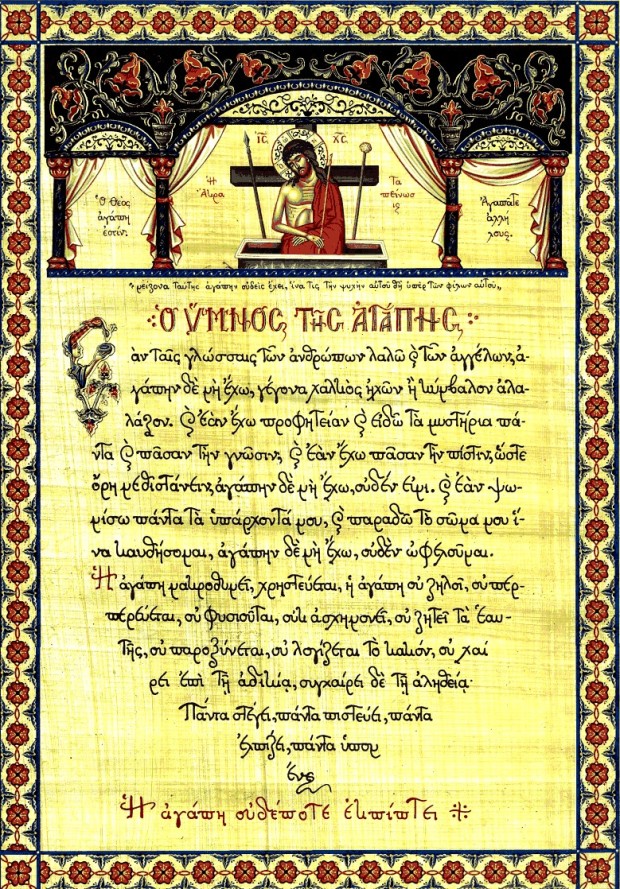 ΙC ΧC
Ὁ Θεὸς
ἀγάπη
ἐστίν.
Ἡ
Ἄκρα
Τα
πείνωσ
ις
Ἀγαπᾶτε
ἀλλή
λους.
«μείζονα ταύτης ἀγάπην οὐδεὶς ἔχει, ἵνα τις τὴν ψυχὴν αὐτοῦ θῇ ὑπὲρ τῶν φίλων αὐτοῦ»
Ὁ ὝΜΝΟΣ Τῆς ἈΓΆΠΗΣ
Ἐὰν ταῖς γλώσσαις τῶν ἀνθρώπων λαλῶ ϗ τῶν ἀγγέλων, ἀ-
γάπην δὲ μὴ ἔχω, γέγονα χαλκὸς ἠχῶν ἢ κύμβαλον ἀλα-
λάζον. ϗ ἐὰν ἔχω προφητείαν ϗ εἰδῶ τὰ μυστήρια πά-
ντα ϗ πᾶσαν τὴν γνῶσιν, ϗ ἐὰν ἔχω πᾶσαν τὴν πίστιν, ὥστε
ὄρη μεθιστάνειν, ἀγάπην δὲ μὴ ἔχω, οὐδέν εἰμι. ϗ ἐὰν ψω-
μίσω πάντα τὰ ὑπάρχοντά μου, ϗ παραδῶ τὸ σῶμα μου ἵ-
να καυθήσομαι, ἀγάπην δὲ μὴ ἔχω, οὐδὲν ὠφελοῦμαι.
Ἡ ἀγάπη μακροθυμεῖ, χρηστεύεται, ἡ ἀγάπη οὐ ζηλοῖ, οὐ περ-
περεύεται, οὐ φυσιοῦται, οὐκ ἀσχημονεῖ, οὐ ζητεῖ τὰ ἑαυ-
τῆς, οὐ παροξύνεται, οὐ λογίζεται τὸ κακόν, οὐ χαί
ρει ἐπὶ τῇ ἀδικίᾳ, συγχαίρει δὲ τῇ ἀληθείᾳ·
Πάντα στέγει, πάντα πιστεύει, πάντα
ἐλπίζει, πάντα ὑπομ
ένει
Ἡ ἀγάπη οὐδέποτε ἐκπίπτει